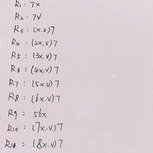 R1: 7x
R2: 7V
R3: (x.v)7
R4: (2x.v)7
R5: (3x.v)7
R6: (4x.v)7
R7: (5x.v)7
R8: (6x.v)7
R9: 56x
R10: (7x.v)7
(8x.v)7